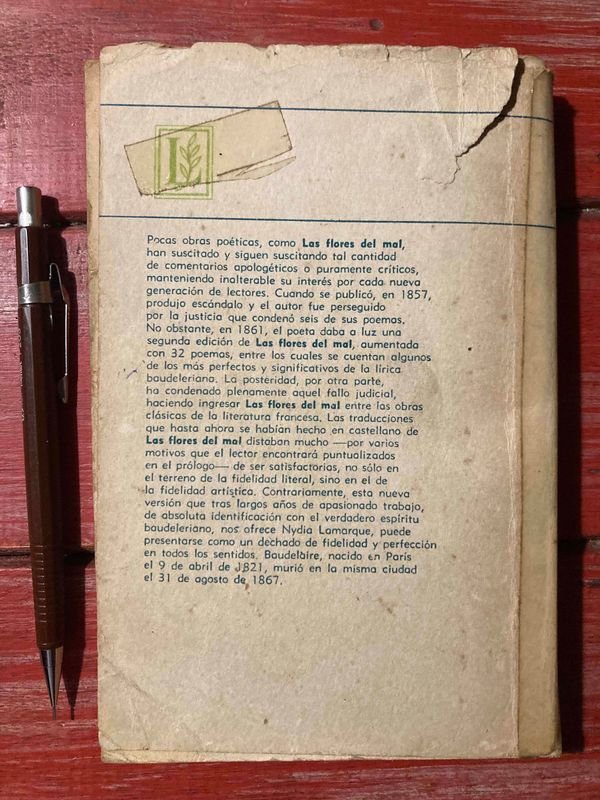 L
Pocas obras poéticas, como Las flores del mal,
han suscitado y siguen suscitando tal cantidad
de comentarios apologéticos o puramente críticos,
manteniendo inalterable su interés por cada nueva
generación de lectores. Cuando se publicó, en 1857,
produjo escándalo y el autor fue perseguido
por la justicia que condenó seis de sus poemas.
No obstante, en 1861, el poeta daba a luz una
segunda edición de Las flores del mal, aumentada
con 32 poemas, entre los cuales se cuentan algunos
de los más perfectos y significativos de la lírica
baudeleriana. La posteridad, por otra parte,
ha condenado plenamente aquel fallo judicial,
haciendo ingresar Las flores del mal entre las obras
clásicas de la literatura francesa. Las traducciones
que hasta ahora se habían hecho en castellano de
Las flores del mal distaban mucho —por varios
motivos que el lector encontrará puntualizados
en el prólogo— de ser satisfactorias, no sólo en
el terreno de la fidelidad literal, sino en el de
la fidelidad artística. Contrariamente, esta nueva
versión que tras largos años de apasionado trabajo,
de absoluta identificación con el verdadero espíritu
baudeleriano, nos ofrece Nydia Lamarque, puede
presentarse como un dechado de fidelidad y perfección
en todos los sentidos. Baudelaire, nacido en París
el 9 de abril de 1821, murió en la misma ciudad
el 31 de agosto de 1867.